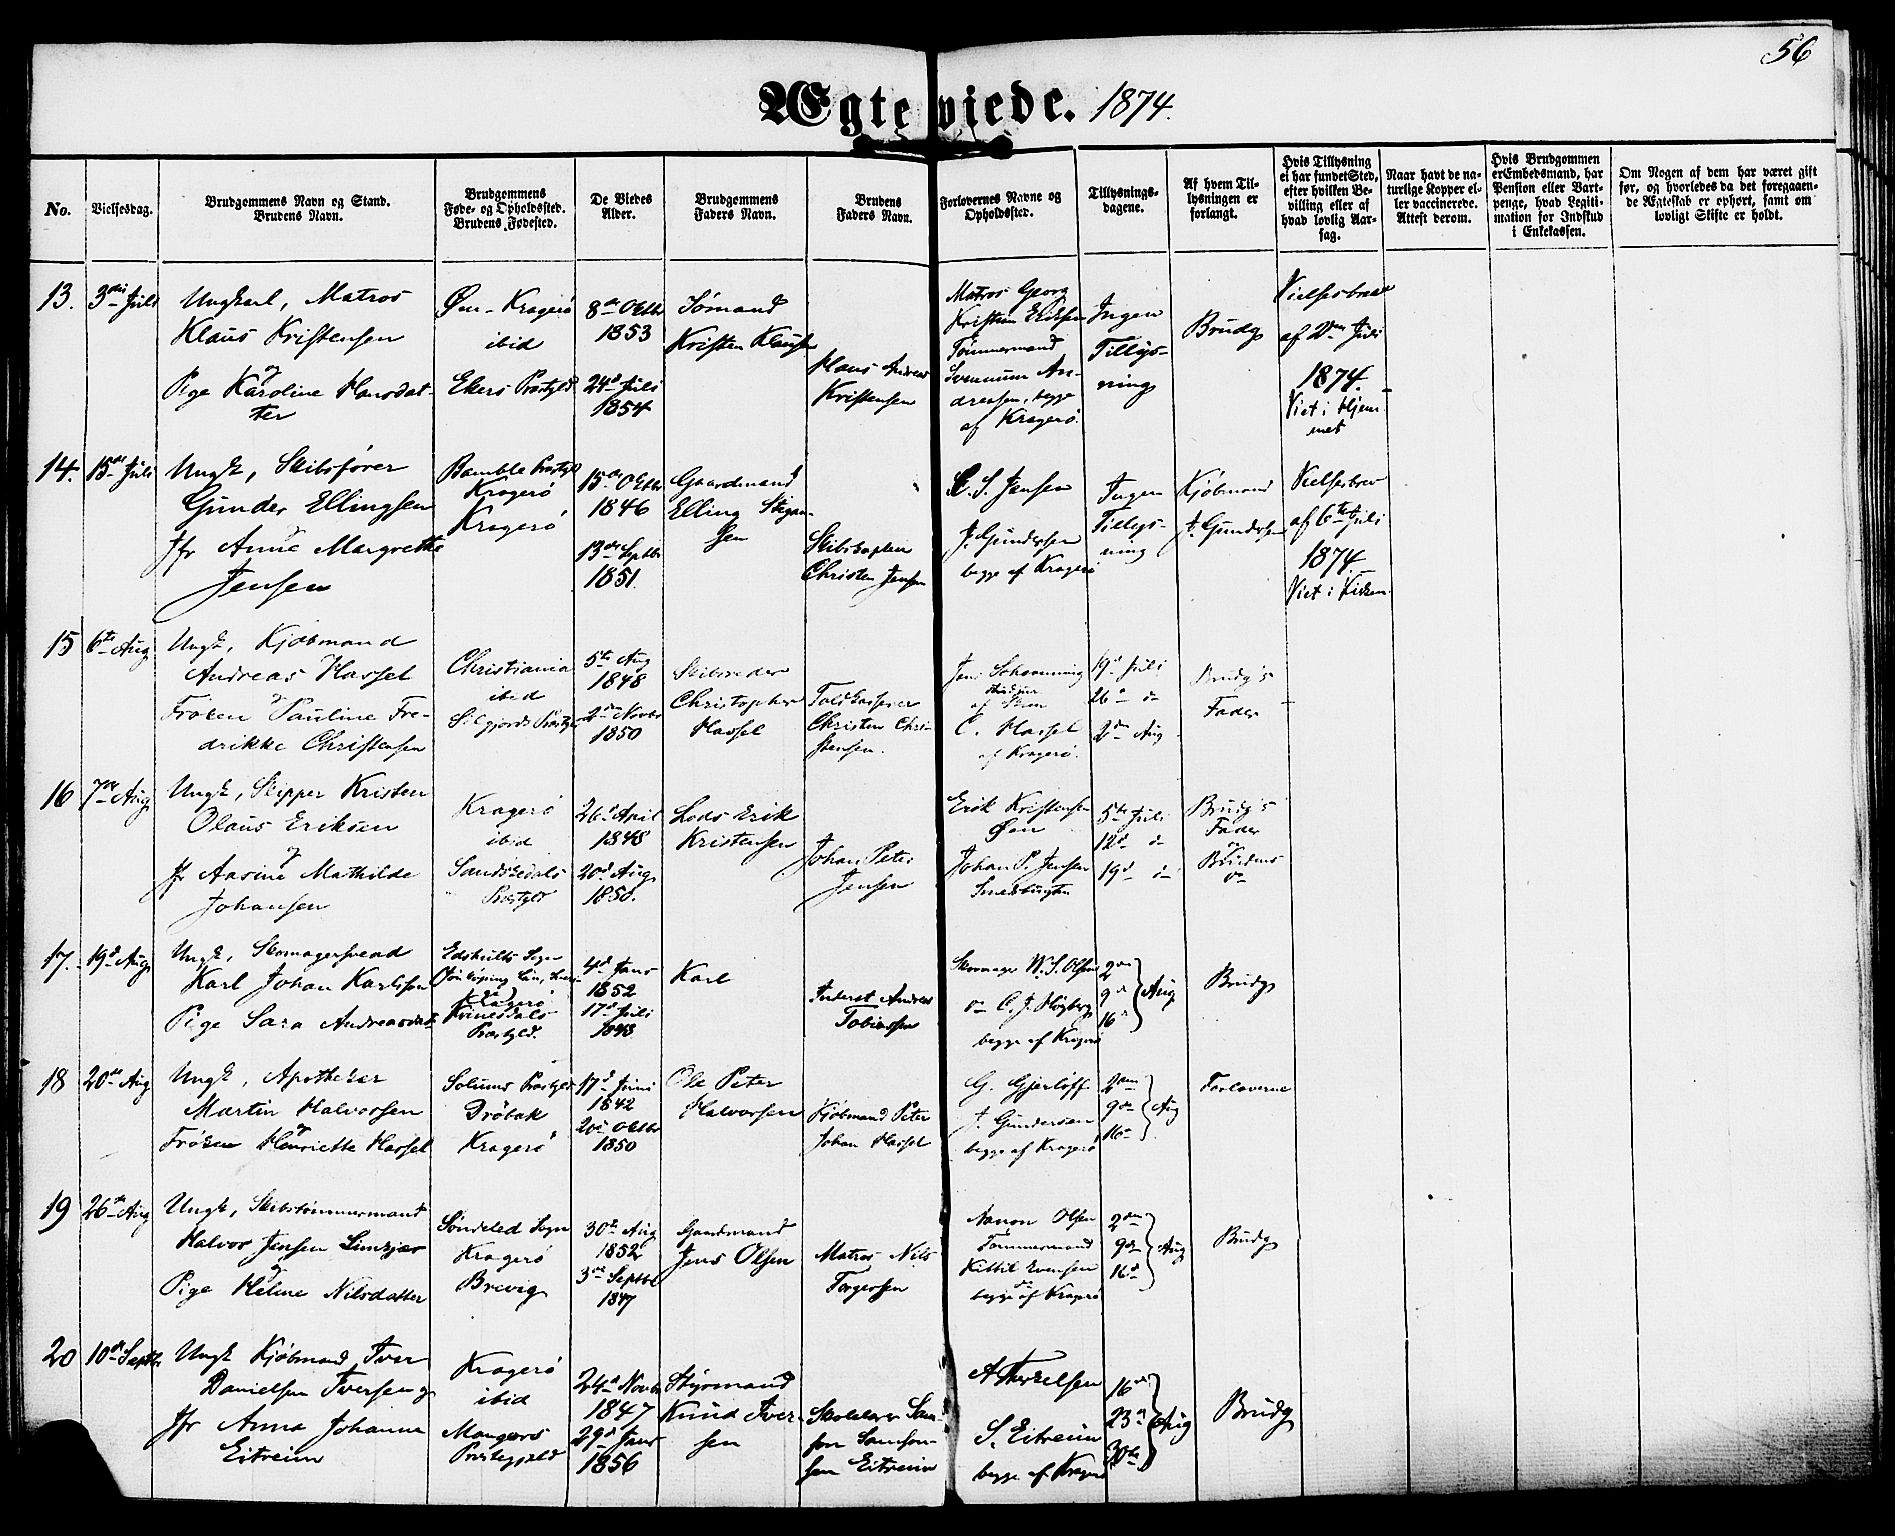 56
Ægteviede. 1874.
No.
Vielsesdag.
Brudgommens Navn og Stand.
Brudens Navn.
Brudgommens
Føde- og Opholdssted.
Brudens Fødested.
De Viedes
Alder.
Brudgommens
Faders Navn.
Brudens
Faders Navn.
Forlovernes Navne og
Opholdssted.
Tillysnings-
dagene.
Af hvem Til-
lysningen er
forlangt.
Hvis Tillysning
ei har fundet Sted,
efter hvilken Be-
villing eller af
hvad lovlig Aar-
sag.
Naar havt de na-
turlige Kopper el-
ler vaccinerede.
Attest derom.
Hvis Brudgommen
er Embedsmand, har
Pension eller Vart-
penge, hvad Legiti-
mation for Indskud
i Enkekassen.
Om Nogen af dem har været gift
før, og hvorledes da det foregaaen-
de Ægteskab er ophørt, samt om
lovligt Skifte er holdt.
13.
3die Juli
Ungkarl, Matros
Klaus Kristensen
og
Pige Karoline Hansdat-
ter
Øen - Kragerø
ibid
Ekers Prstgld
8de Oktbr
1853
24d Juli
1854
Sømand
Kristen Klausen
Hans Andreas
Kristensen
Matros Georg
Kristian Eriksen
Tømmermand
Svennum An-
dreasen, begge
af Kragerø.
Ingen
Tillys-
ning
Brudg
Vielsesbrev
af 2den Juli
1874.
Viet i Hjem-
met
14.
15de Juli
Ungk, Skibsfører
Gunder Ellingsen
og
Jfr Anne Margrethe
Jensen
Bamble Prstgld
Kragerø
Kragerø
15de Oktbr
1846
13de Septbr
1851.
Gaardmand
Elling Stian-
sen
Skibskaptein
Christen Jensen
S. Jensen
J. Gundersen
begge af Kragerø
Ingen
Tillys-
ning
Kjøbmand
J. Gundersen
Vielsesbrev
af 6te Juli
1874
Viet i Kirken
15
6te Aug
Ungk, Kjøbmand
Andreas Hassel
og
Frøken Pauline Fre-
drikke Christensen
Christiania
ibid
Siljords Prstgld
5te Aug
1848
2den Novbr
1850
Skibsreder
Christopher
Hassel
Toldkasserer
Christen Chri-
stensen.
C. Hassel
af Kragerø.
19d Juli
26d do
2den Aug
Brudg's
Fader
16
7de Aug
Ungk, Skipper Kristen
Olaus Eriksen
og
Jfr Aasine Mathilde
Johansen
Kragerø
ibid
Sandøkedals
Prstgld
26d April
1848
20d Aug
1850.
Lods Erik
Kristensen
Johan Peter
Jensen
Erik Kristensen
Øen
Johan P. Jensen
Smedbugten
5te Juli
12d do
19d do
Brudg's
Fader
og
Brudens
do
17.
19d Aug
Ungk, Skomagersvend
Karl Johan Karlsen
Pige Sara Andreasdat
Edshults Sogn
Kragerø
Kvinesdals
Prstgld.
4d Janr
1852
17d Juli
1848
Karl
Inderst Andreas
Tobiassen
Skomager W. S. Olsen
do C. J. Høgberg
begge af Kragerø
2den
9de
16d
Aug
Brudg
18
20de Aug
Ungk, Apotheker
Martin Halvorsen
og
Frøken Henriette Hassel
Solums Prstgld
Drøbak
Kragerø
17d Juni
1842
20d Oktbr
1850
Ole Peter
Halvorsen
Kjøbmand Peter
Johan Hassel
G. Gjerløff
J. Gundersen
begge af Kragerø
2den
9de
16de
Aug
Forloverne
19
26de Aug
Ungk, Skibstømmermand
Halvor Jensen Limkjær
og
Pige Helene Nilsdatter
Søndeled Sogn
Kragerø
Brevig
30te Aug
1852
3de Septbr
1847
Gaardmand
Jens Olsen
Matros Nils
Torgersen
Aanon Olsen
Tømmermand
Kittil Evensen
do
begge af Kragerø
2den
9de
16d
Aug
Brudg
20
10de Septbr
Ungk Kjøbmand Iver
Danielsen Iversen og
Jfr Anna Johanne
Eitreim
Kragerø
ibid
Mangers
Præstegjeld
24d Novbr
1847
29d Janr
1856
Styrmand
Knud Iver-
sen
Skolelærer Sam-
son Samson-
sen Eitreim
A Therkelsen
S. Eitreim
begge af Kragerø
16de
23d
30te
Aug
Brudg